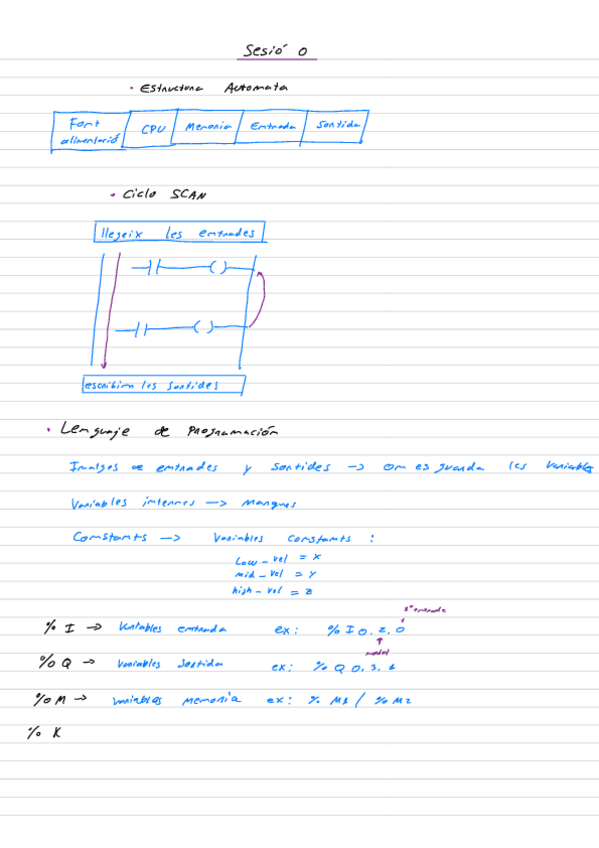 Sesió 0
• Estructura Automata
Font alimentació | CPU | Memoria | Entrada | Sortida
• Ciclo SCAN
llegeix les entrades
escribim les sortides
• Lenguaje de Programación
Imatges de entrades y sortides -> on es guarda les variables
Variables internes -> Marques
Constants -> Variables constants :
Low - vel = X
mid - vel = Y
high - vel = Z
%I -> Variables entrada ex: %I0.2.0
entrada
%Q -> Variables sortida ex: %Q0.3.
%M -> variables memoria ex: %M1 / %M2
%K